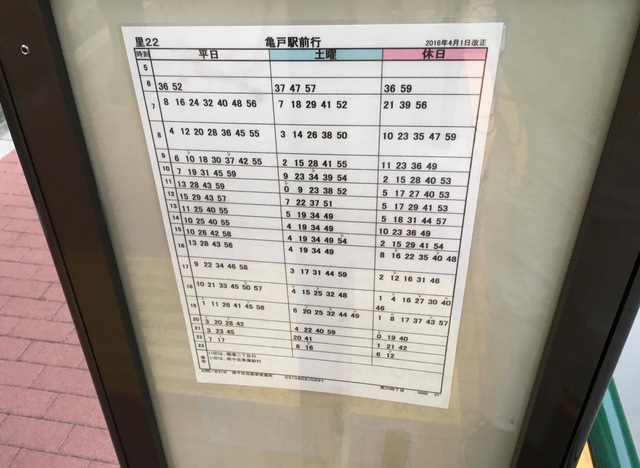 里22 亀戸駅前行 2016年4月1日改正
時刻 平日 土曜 休日
5
6 36 52 37 47 57 36 59
7 8 16 24 32 40 48 56 7 18 29 41 52 21 39 56
8 4 12 20 28 36 45 55 3 14 26 38 50 10 23 35 47 59
9 6 10 18 30 37 42 55 2 15 28 41 55 11 23 36 49
10 7 19 31 45 59 9 23 34 39 54 2 15 28 40 53
11 13 28 43 59 0 9 23 38 52 5 17 27 40 53
12 15 29 43 57 7 22 37 51 5 17 29 41 53
13 11 25 40 55 5 19 34 49 5 18 31 44 57
14 10 25 40 55 4 19 34 49 10 23 36 49
15 10 26 42 58 4 19 34 49 54 2 15 29 41 54
16 13 28 43 56 4 19 34 49 8 16 22 35 40 48
17 9 22 34 46 58 3 17 31 44 59 2 12 16 31 46
18 10 21 33 45 50 57 4 15 25 32 48 1 4 16 27 30 40 46
19 1 11 26 41 45 58 6 20 25 32 44 49 1 8 17 37 43 57
20 3 20 28 42 4 22 40 59 0 19 40
21 3 23 45 20 41 1 21 42
22 7 17 6 16 6 12